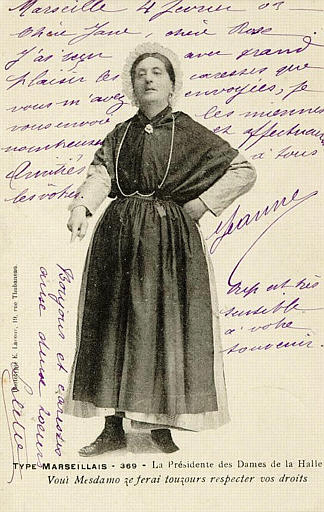 Marseille 4 février 03
Chère Jane, chère Rose
J'ai reçu avec grand
plaisir les caresses que
vous m'avez envoyées, je
vous envoie les miennes
nombreuses et affectueuses
Amitiés à tous
les vôtres.
Jeanne
très
sensible
à votre
souvenir.
Bonjours et caresses
aux deux soeurs
19, rue Thubaneau
TYPE MARSEILLAIS - 369 - La Présidente des Dames de la Halle
Voui Mesdamo ze ferai touzours respecter vos droits